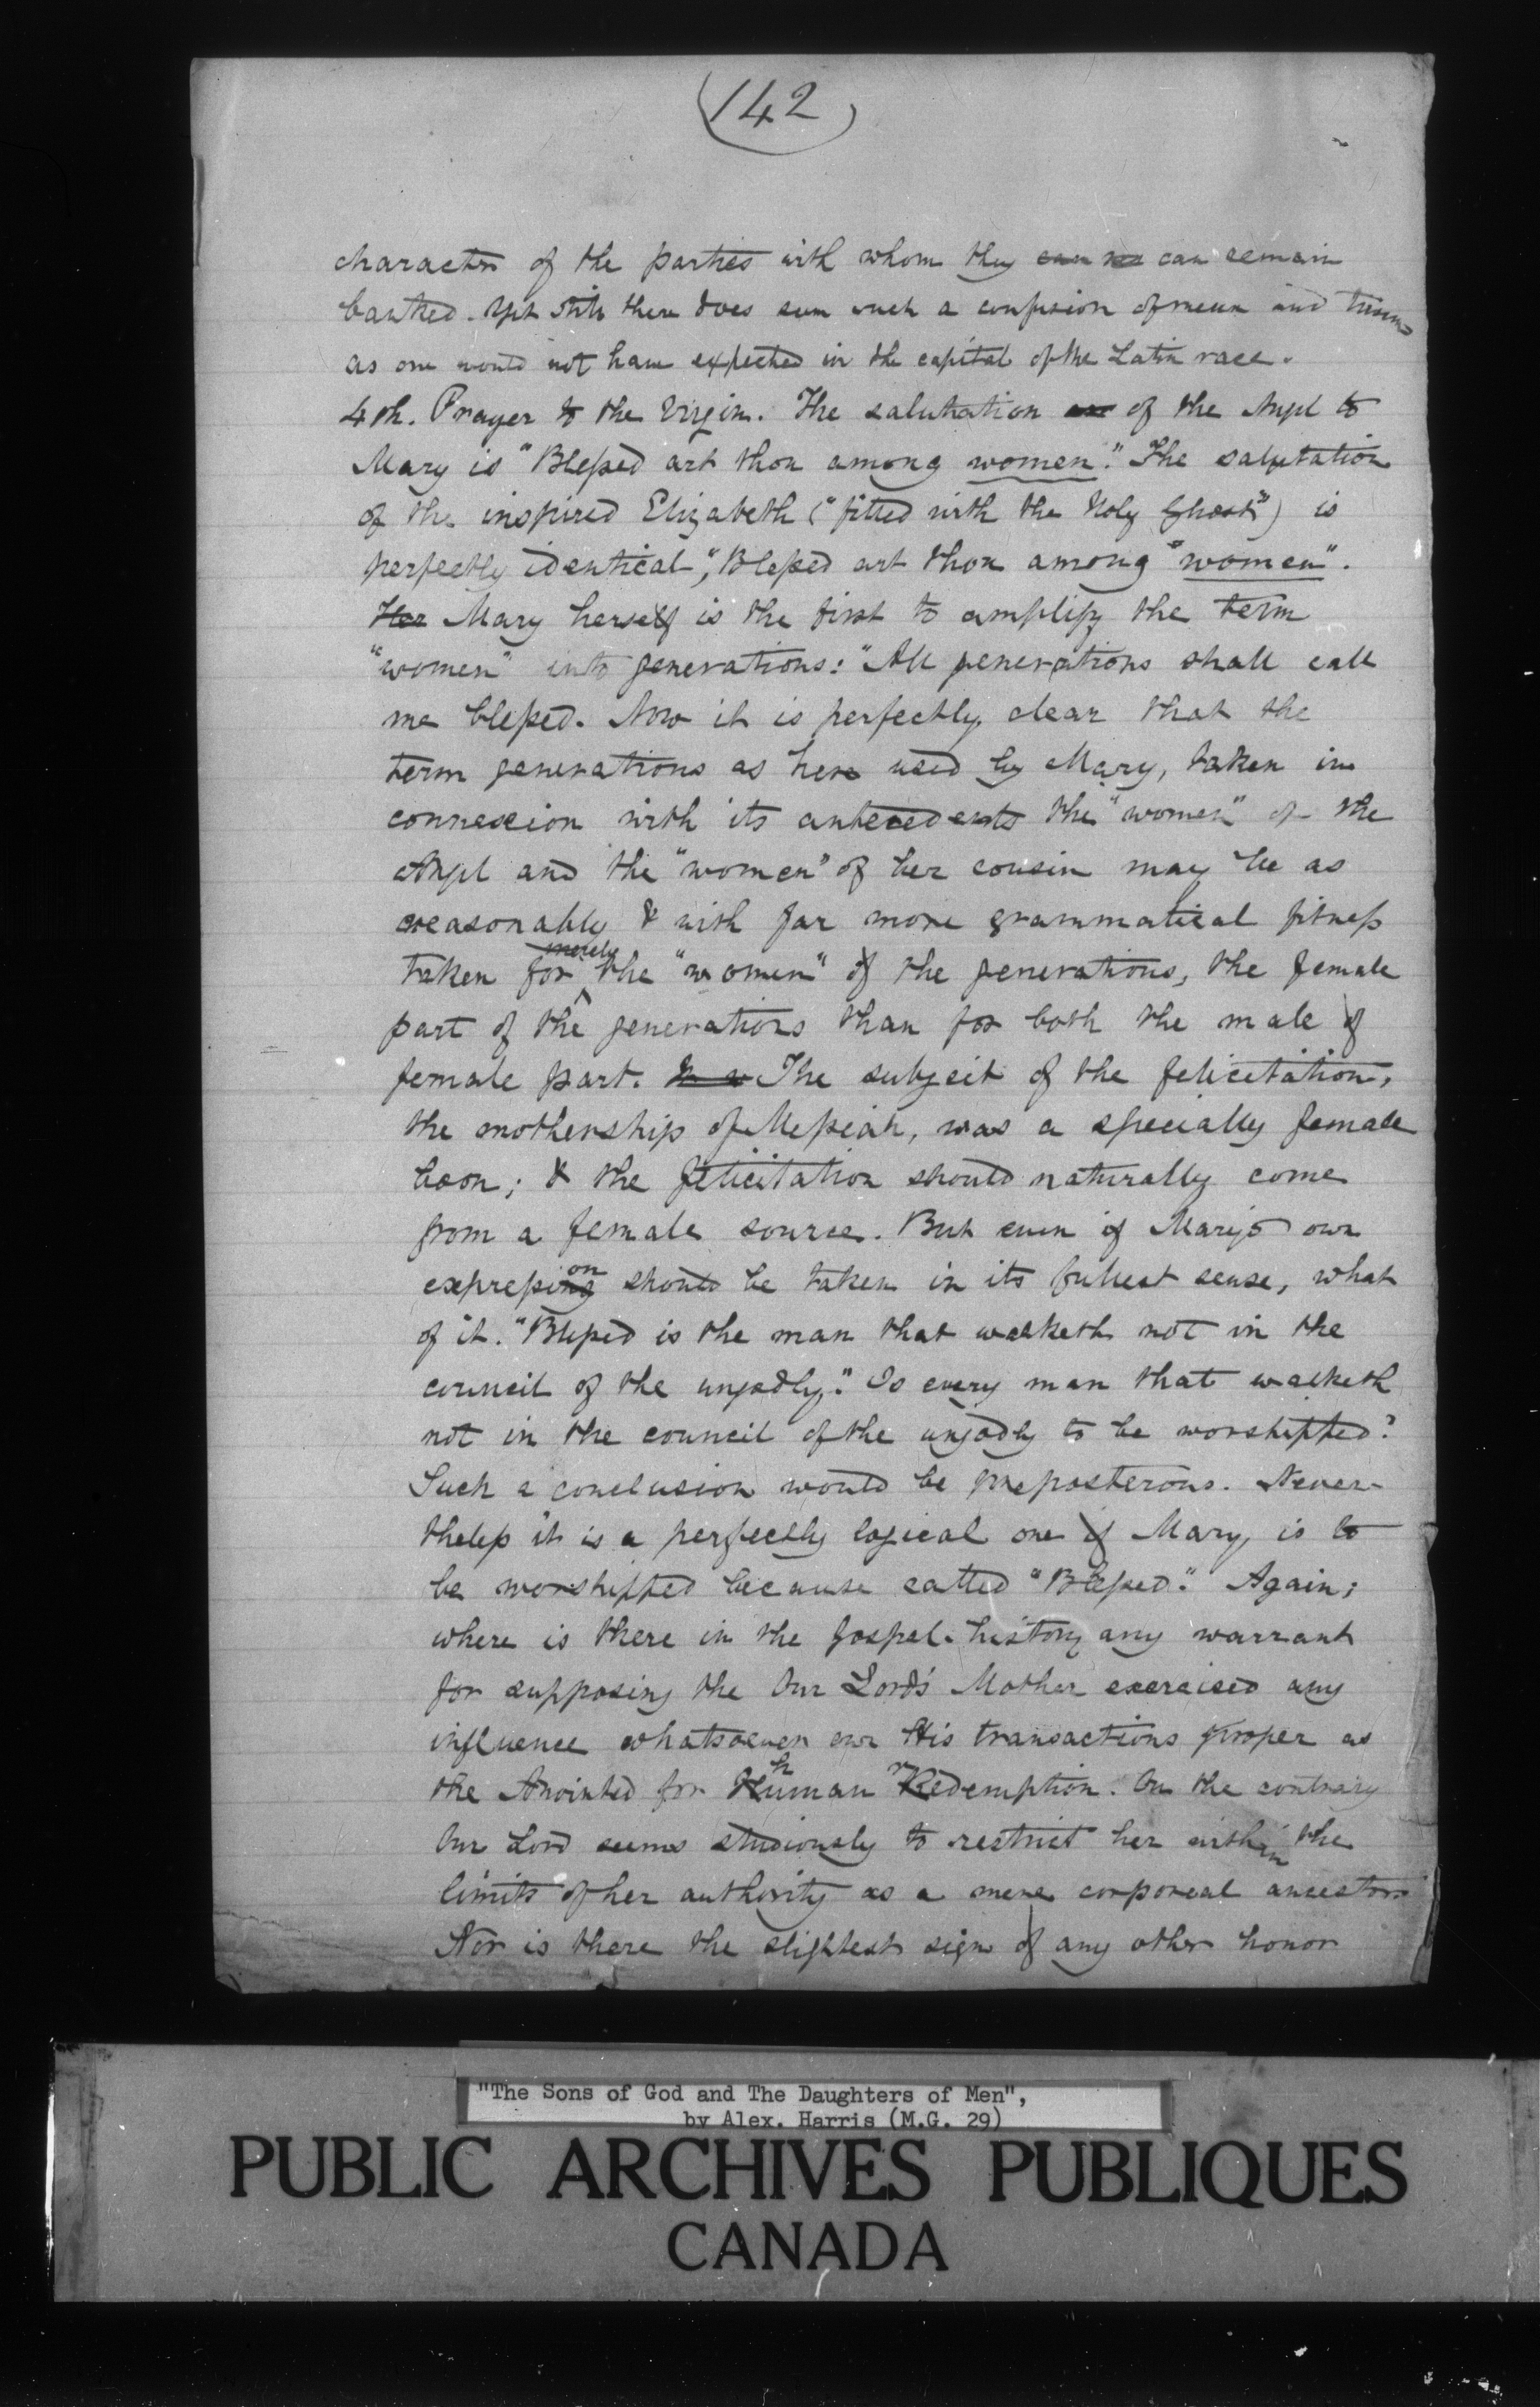 (142)
character of the parties with whom they can no can remain
banked. Yet still there does seem such a confusion of meum and tuum
as one would not have expected in the capital of the Latin race.
4th. Prayer to the Virgin. The salutation of the Angel to
Mary is "Blessed art thou among women." The salutation
of the inspired Elizabeth ("filled with the Holy Ghost") is
perfectly identical, "Blessed art thou among "women".
Her Mary herself is the first to amplify the term
"women" into generations: "All generations shall call
me blessed. Now it is perfectly clear that the
term generations as here used by Mary, taken in
connexion with its antecedents the "women" of the
Angel and the "women" of her cousin may be as
reasonably & with far more grammatical fitness
taken for merely the "women" of the generations, the female
part of the generations than for both the male &
female part. The subject of the felicitation,
the mothership of Messiah, was a specially female
boon; & the felicitation should naturally come
from a female source. But even if Mary's own
expression should be taken in its fullest sense, what
of it. "Blessed is the man that walketh not in the
council of the ungodly." Is every man that walketh
not in the council of the ungodly to be worshipped?
Such a conclusion would be preposterous. Never-
theless it is a perfectly logical one if Mary, is to
be worshipped because called "Blessed." Again;
where is there in the gospel-history any warrant
for supposing the Our Lord's Mother exercised any
influence whatsoever over His transactions proper as
the Anointed for human redemption. On the contrary
Our Lord seems studiously to restrict her within the
limits of her authority as a mere corporeal ancestor.
Nor is there the slightest sign of any other honor
"The Sons of God and The Daughters of Men",
by Alex. Harris (M.G. 29)
PUBLIC ARCHIVES PUBLIQUES
CANADA